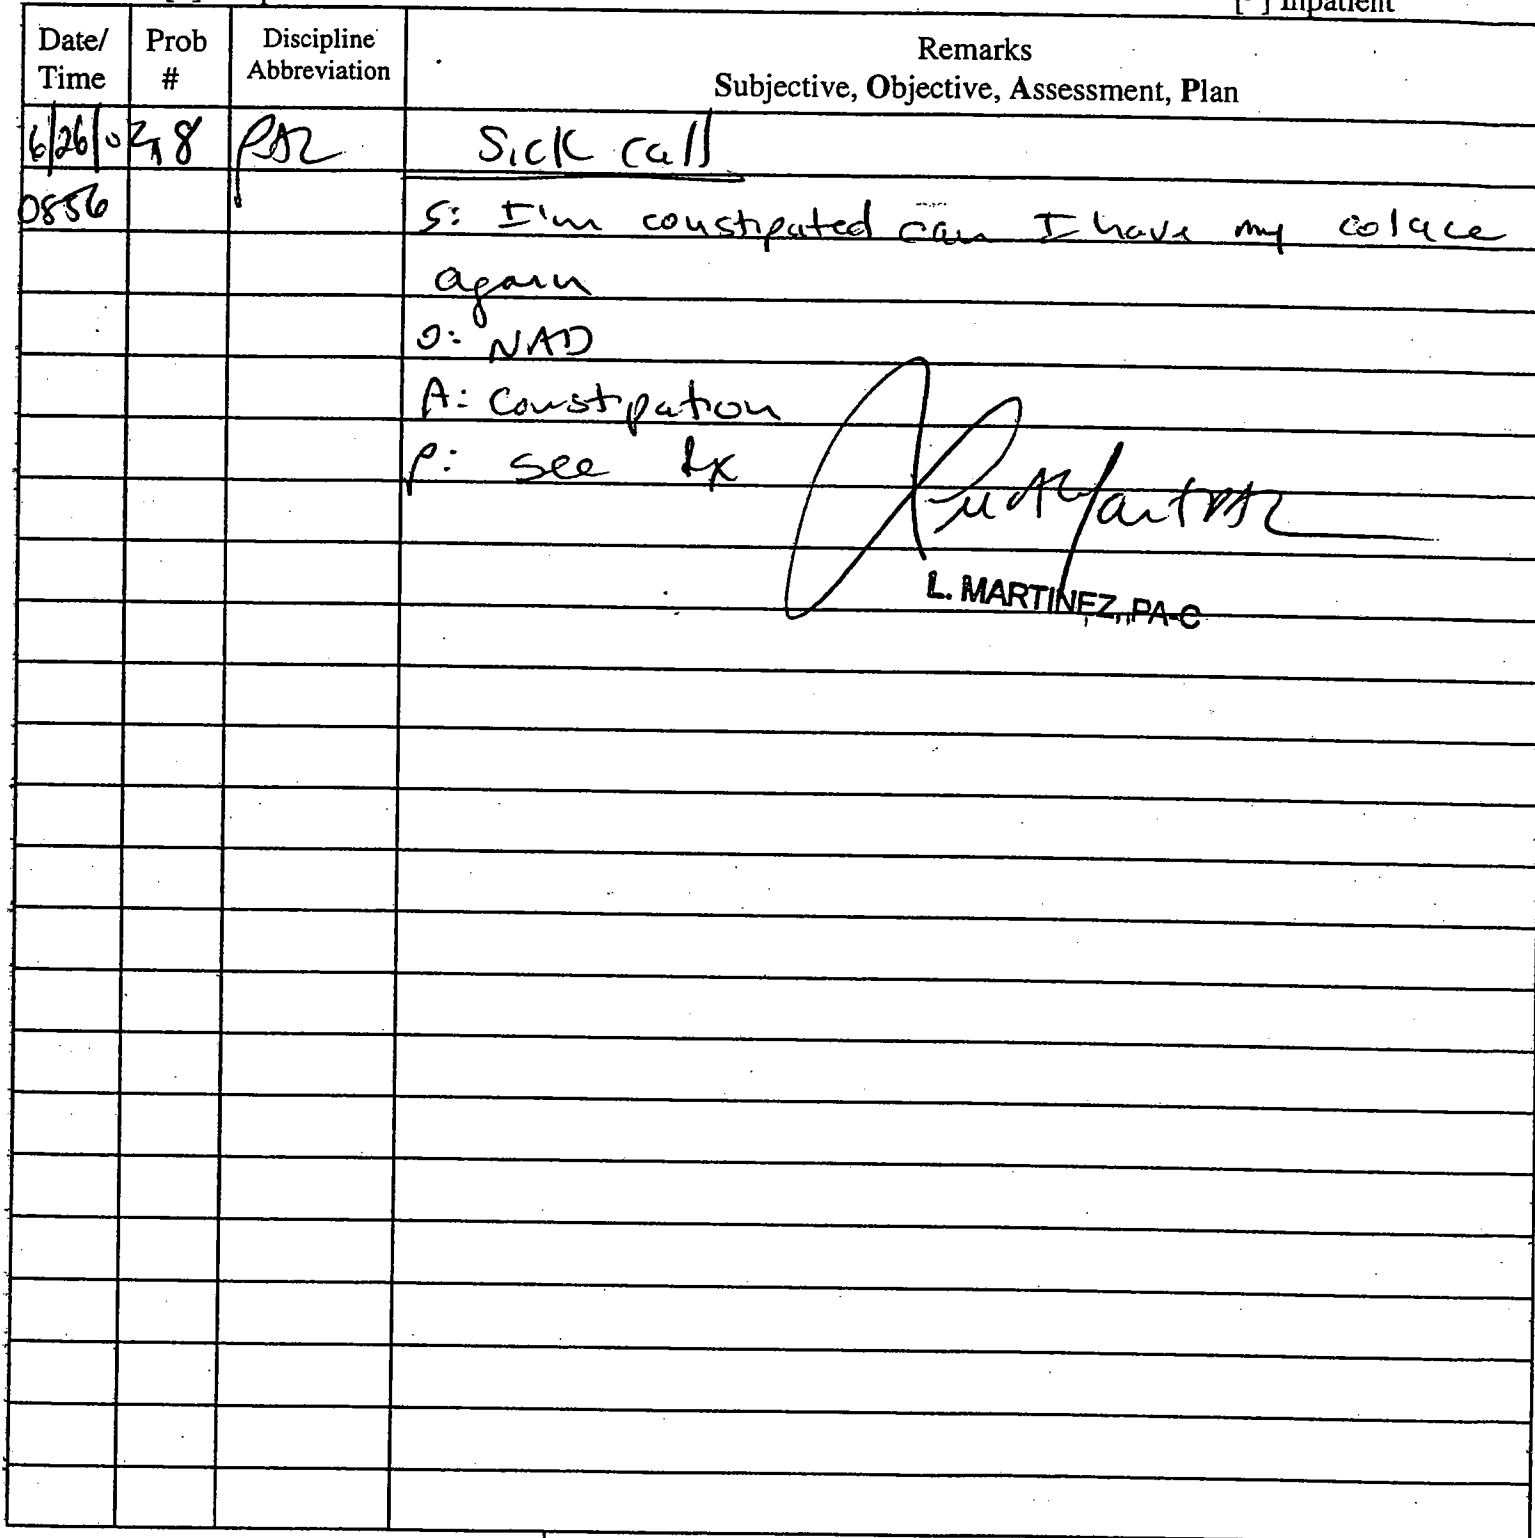 [ ] Inpatient
Date/ Time Prob # Discipline Abbreviation Remarks
Subjective, Objective, Assessment, Plan
6/26/0 8 Sick call
0856 S: I'm constipated can I have my colace
again
O: NAD
A: Constipation
P: see Rx
L. MARTINEZ, PA-C